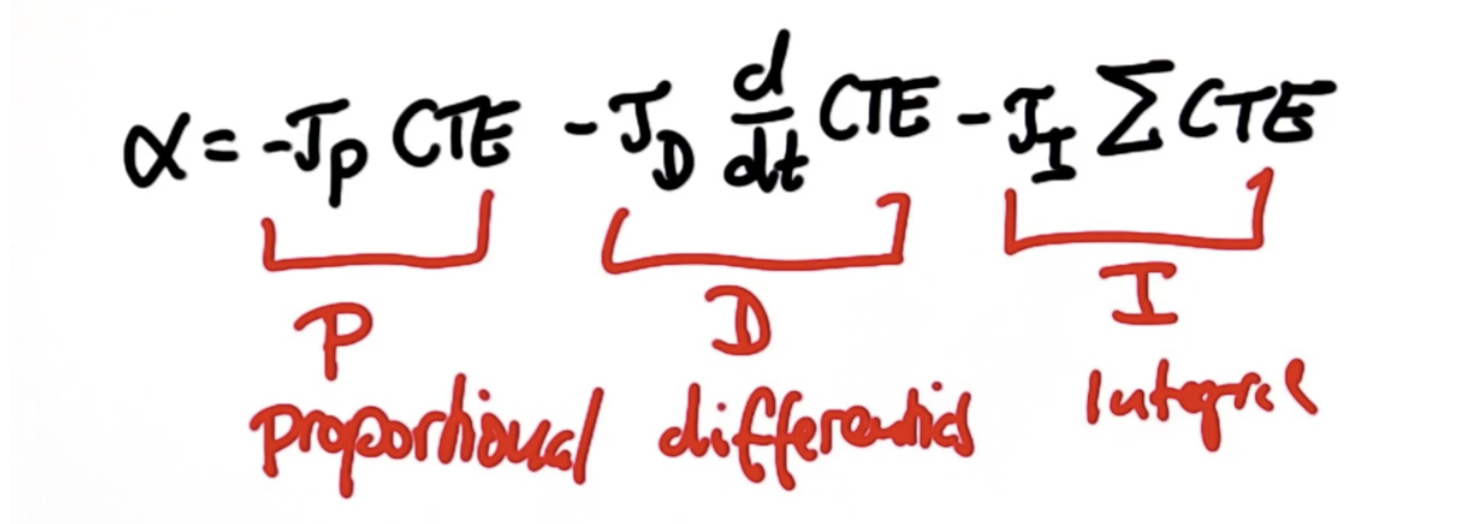 α = -J_P CTE - J_D d/dt CTE - J_I Σ CTE
P D I
proportional differential Integral